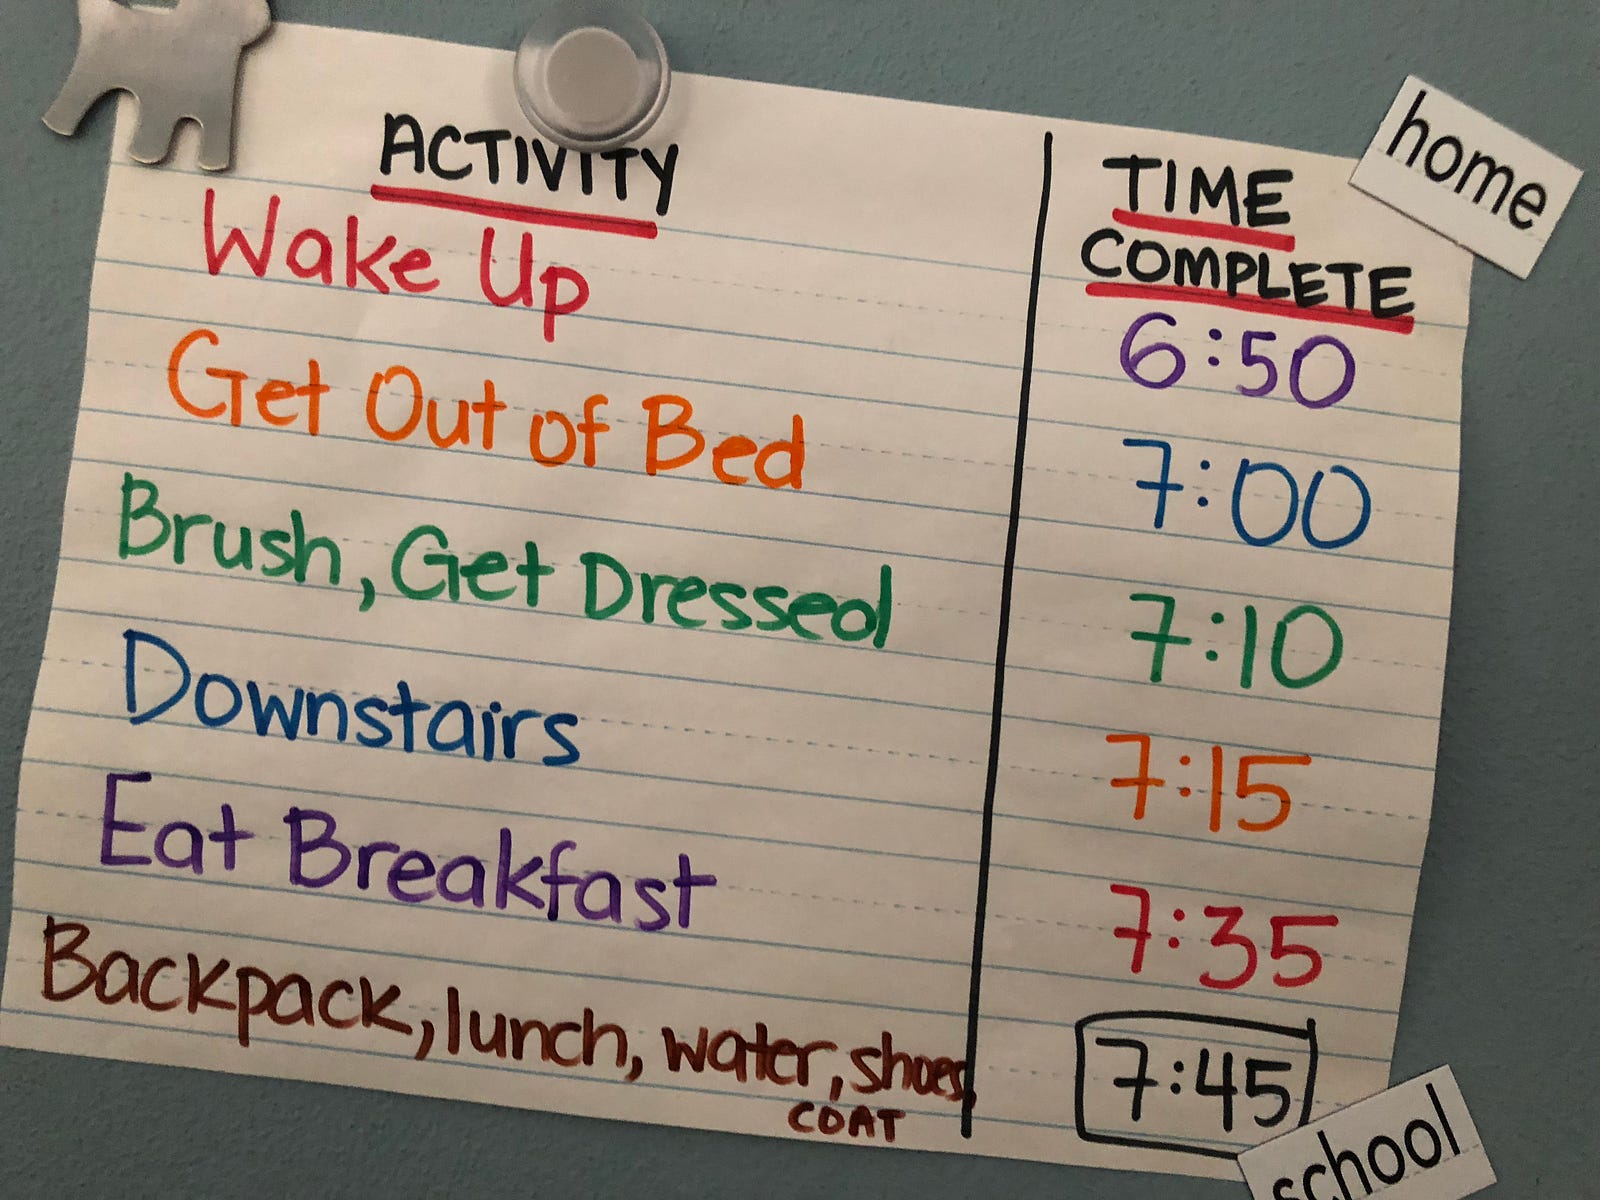 ACTIVITY
TIME
COMPLETE
home
Wake Up
6:50
Get Out of Bed
7:00
Brush, Get Dressed
7:10
Downstairs
7:15
Eat Breakfast
7:35
Backpack, lunch, water, shoes,
COAT
7:45
school